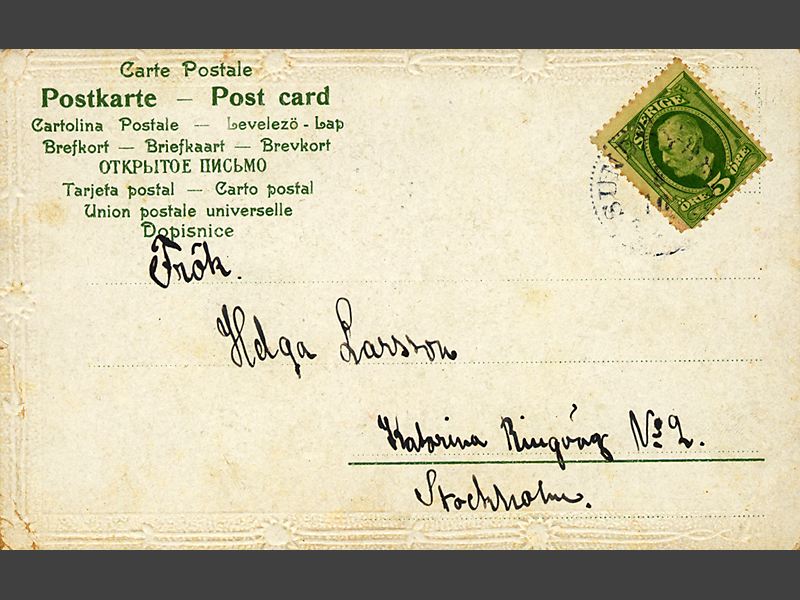 Carte Postale
Postkarte — Post card
Cartolina Postale — Levelezö - Lap
Brefkort — Briefkaart — Brevkort
ОТКРЫТОЕ ПИСЬМО
Tarjeta postal — Carto postal
Union postale universelle
Dopisnice
SVERIGE
5 ÖRE ÖRE
Frök.
Helga Larsson
Katarina Ringväg No 2.
Stockholm.